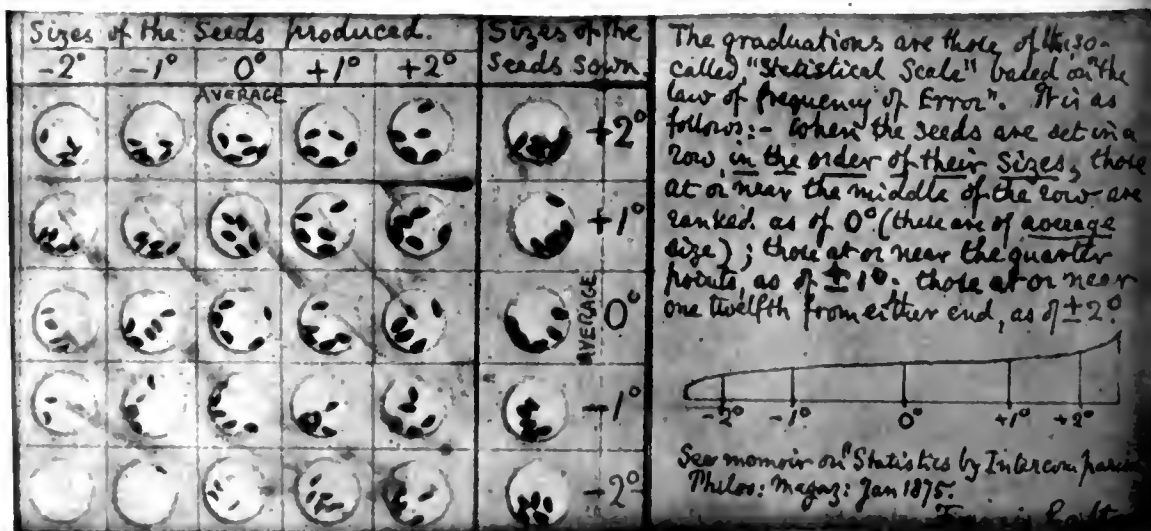 Sizes of the Seeds produced.
-2° -1° 0° +1° +2°
AVERAGE
Sizes of the
Seeds sown.
+2°
+1°
AVERAGE 0°
-1°
-2°
The graduations are those of the so-
called, "Statistical Scale" based on "the
law of frequency of Error". It is as
follows:- When the seeds are set in a
row, in the order of their sizes, those
at or near the middle of the row are
ranked as of 0° (these are of average
size); those at or near the quarter
points, as of ±1°. those at or near
one twelfth from either end, as of ±2°.
-2° -1° 0° +1° +2°
See memoir on "Statistics by
Philos: Magaz: Jan 1875.
Francis